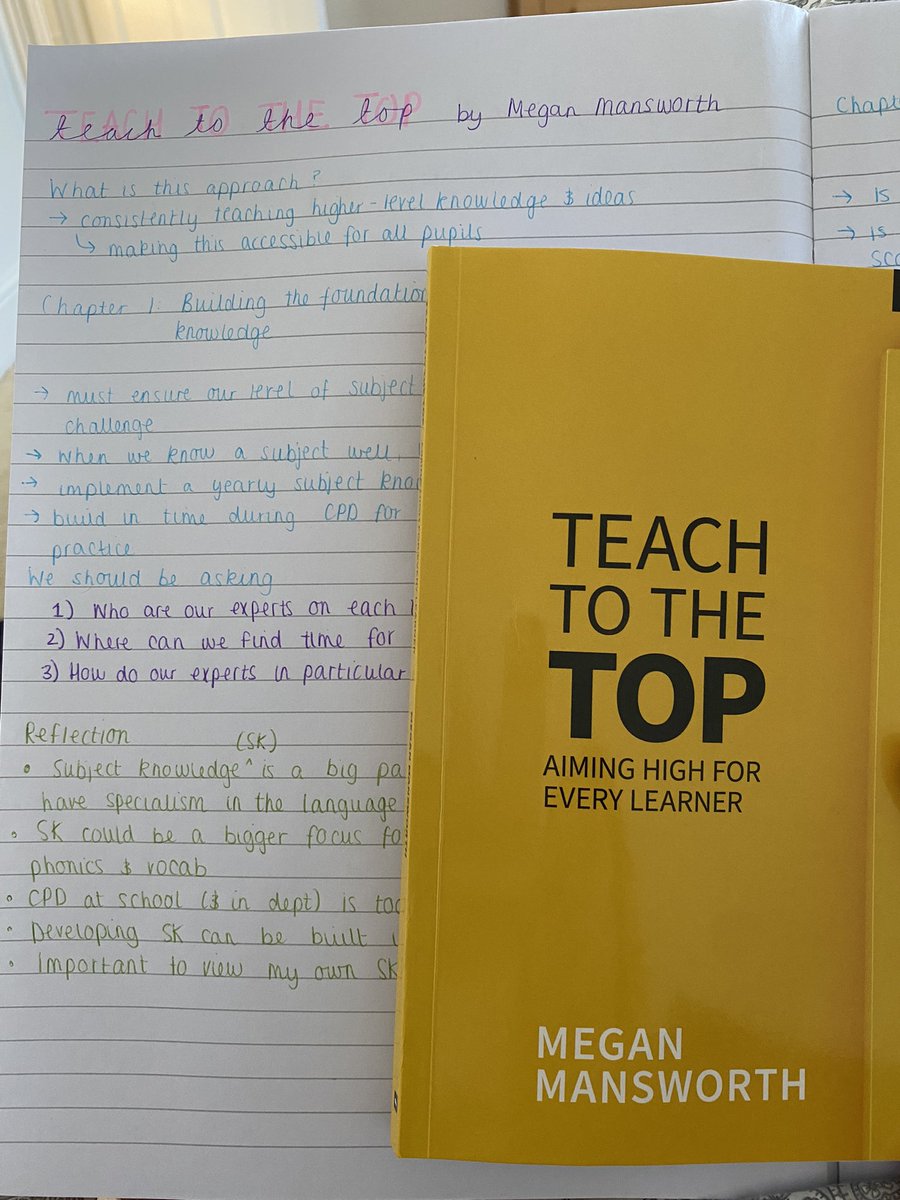 teach to the top by Megan Mansworth
TEACH TO THE TOP
What is this approach?
→ consistently teaching higher-level knowledge & ideas
↳ making this accessible for all pupils
Chapter 1: Building the foundation
knowledge
→ must ensure our level of subject
challenge
→ When we know a subject well,
→ implement a yearly subject
→ build in time during CPD for
practice
We should be asking
1) Who are our experts on each
2) Where can we find time for
3) How do our experts in particular
Reflection
• Subject knowledge ^ (SK) is a big
have specialism in the language
• SK could be a bigger focus
phonics & vocab
• CPD at school (& in dept) is
• Developing SK can be built
• Important to view my own SK
→ is
→ is
TEACH
TO THE
TOP
AIMING HIGH FOR
EVERY LEARNER
MEGAN
MANSWORTH